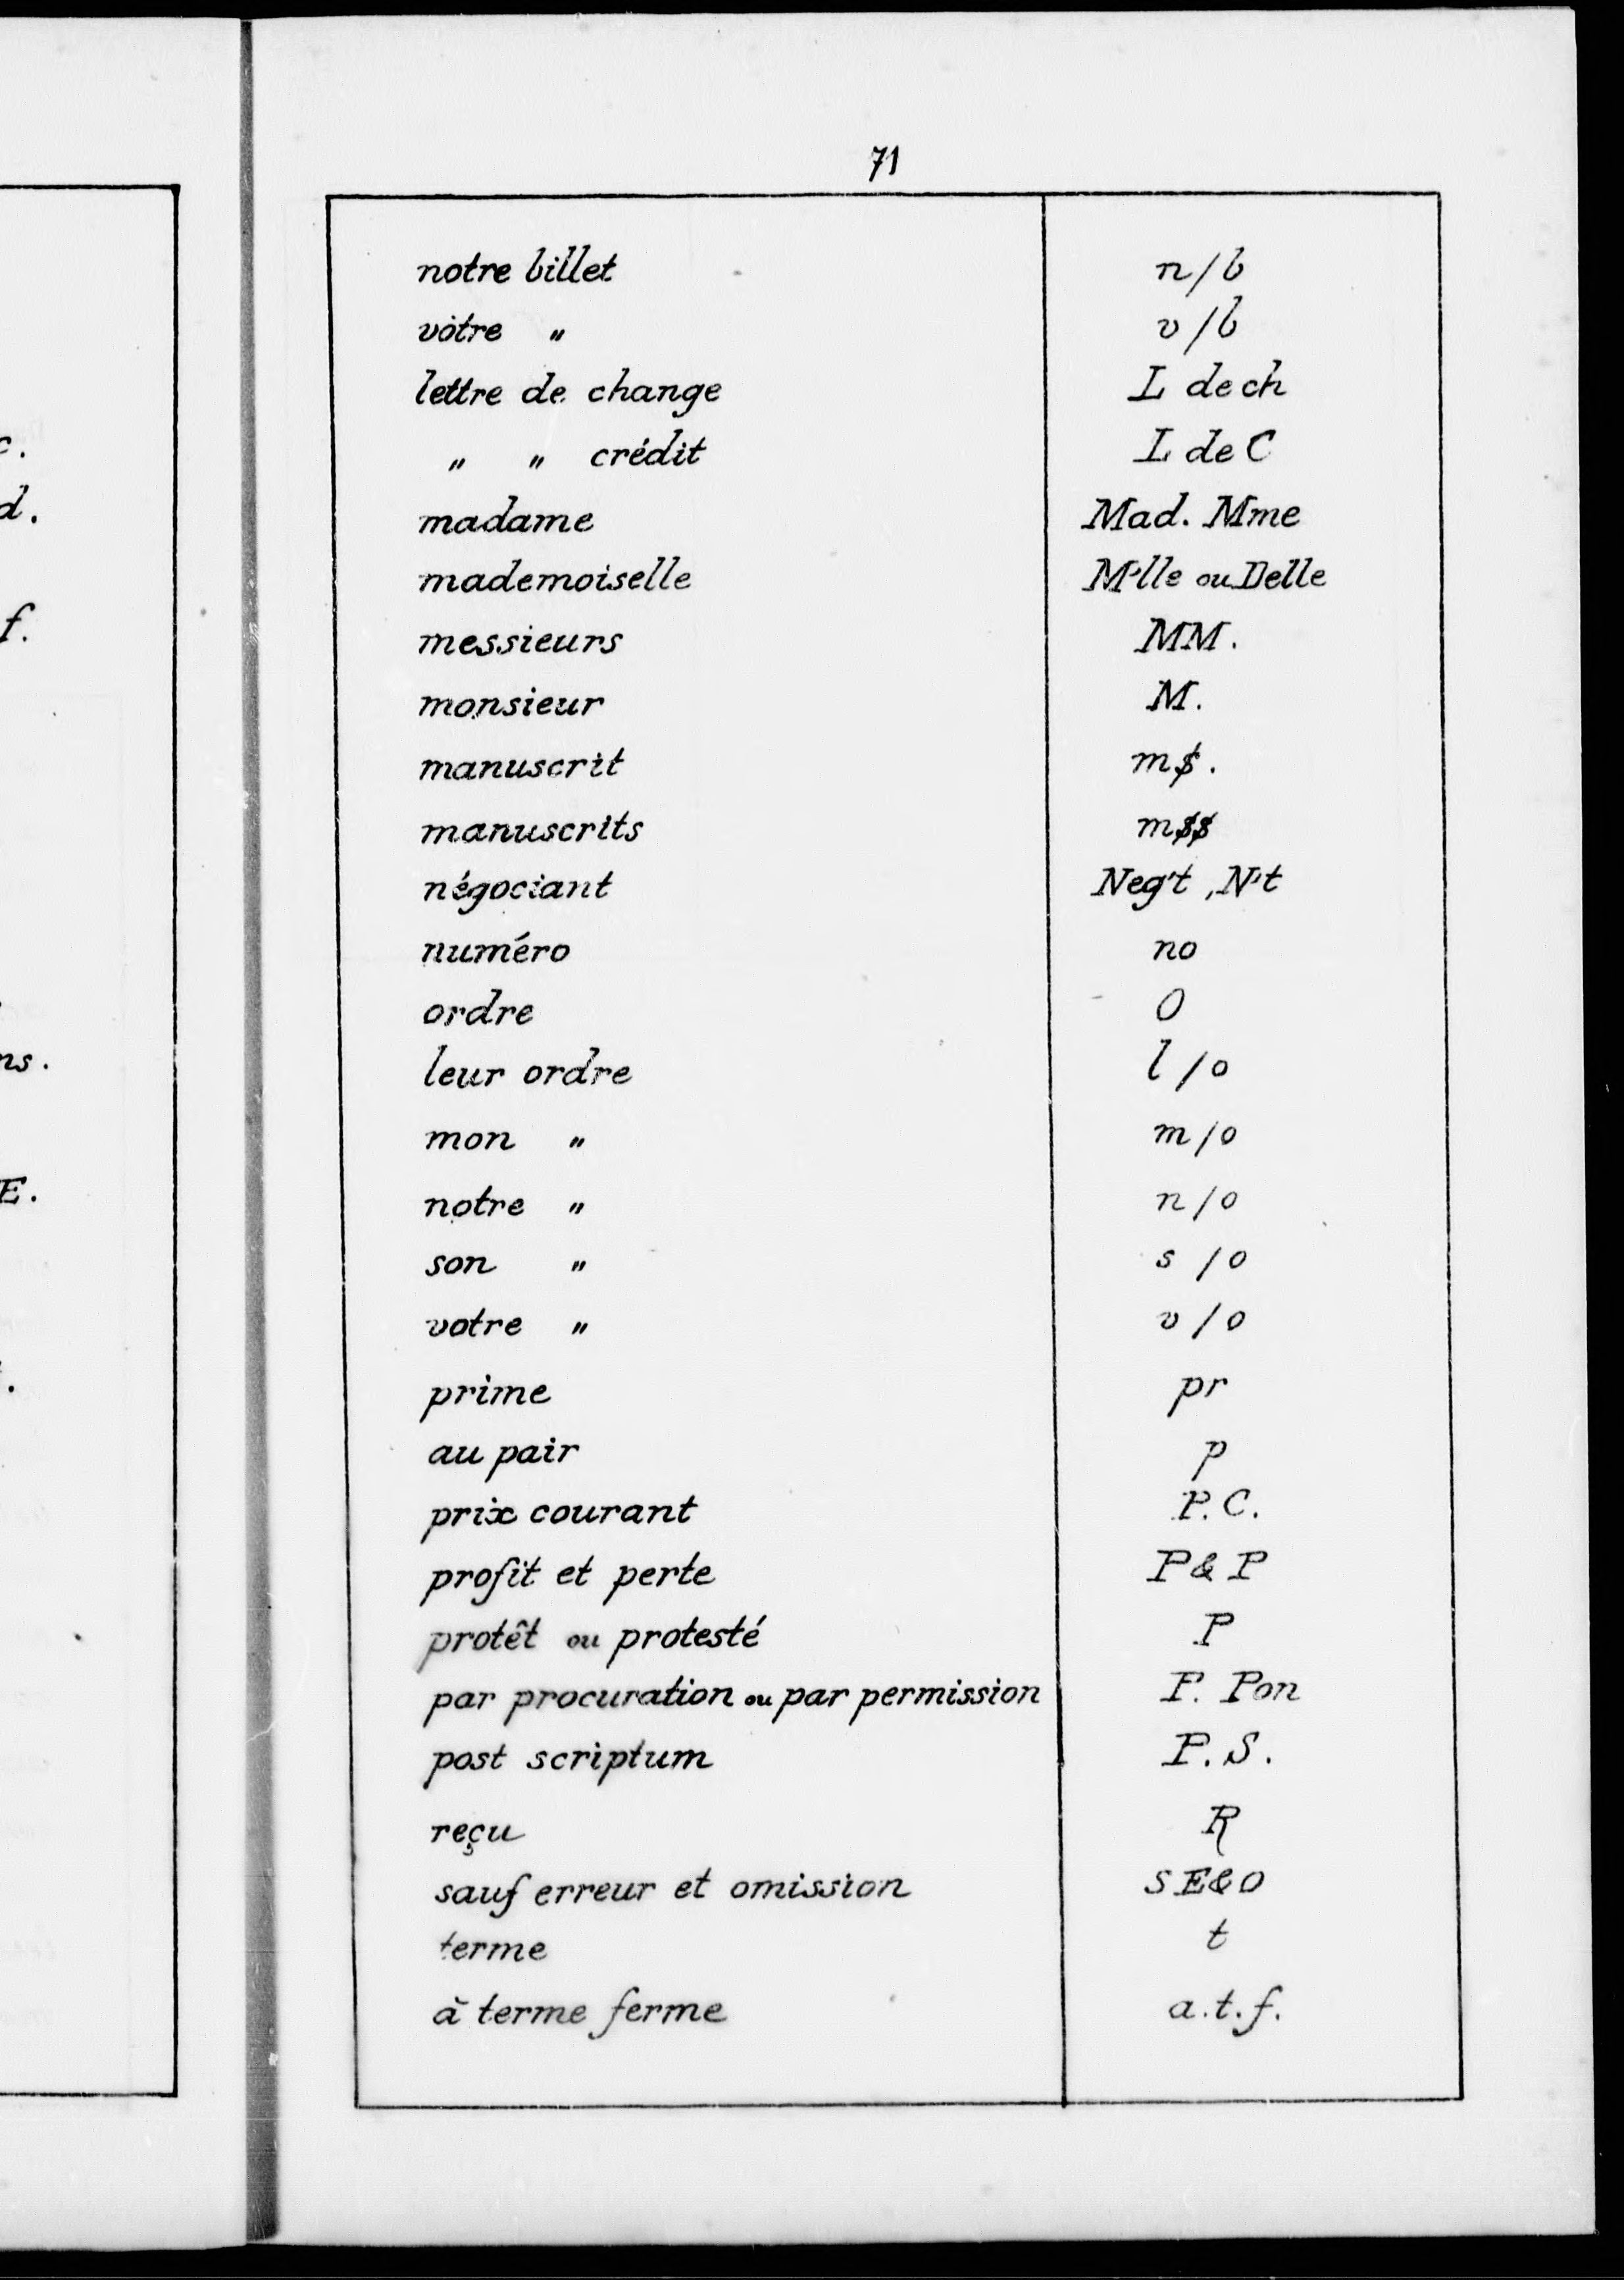 71
notre billet n/b
vótre " v/b
lettre de change L de ch
" " crédit L de C
madame Mad. Mme
mademoiselle M'lle ou Delle
messieurs MM.
monsieur M.
manuscrit m$.
manuscrits m$$
négociant Neg't, N't
numéro no
ordre O
leur ordre l/o
mon " m/o
notre " n/o
son " s/o
votre " v/o
prime pr
au pair p
prix courant P.C.
profit et perte P & P
protêt ou protesté P
par procuration ou par permission P. Pon
post scriptum P.S.
reçu R
sauf erreur et omission S E & O
terme t
à terme ferme a.t.f.
c.
d.
f.
ns.
E.